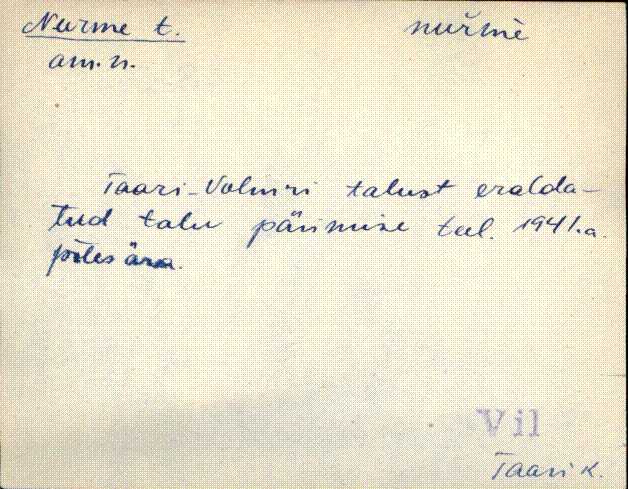 Nurme t. nuŕmè
am.n.
Taari-Volmri talust eralda-
tud talu pärimise teel. 1941.a.
põles ära.
Vil
Taari k.